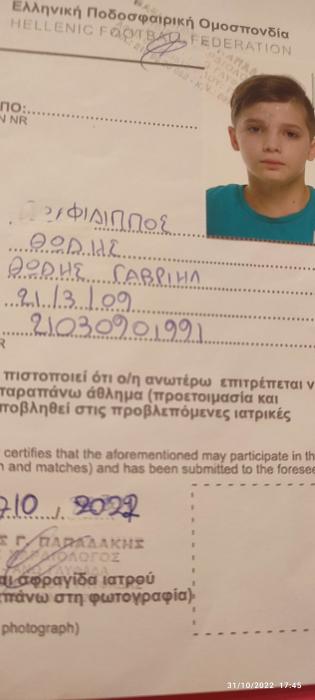 Ελληνική Ποδοσφαιρική Ομοσπονδία
HELLENIC FOOTBALL FEDERATION
ΠΟ:
N NR
ΦΙΛΙΠΠΟΣ
ΘΩΔΗΣ
ΘΩΔΗΣ ΓΑΒΡΙΗΛ
21/3/09
21030901991
R
πιστοποιεί ότι ο/η ανωτέρω επιτρέπεται ν
παραπάνω άθλημα (προετοιμασία και
ποβληθεί στις προβλεπόμενες ιατρικές
certifies that the aforementioned may participate in th
n and matches) and has been submitted to the foresee
/10, 2022
Σ Γ. ΠΑΠΑΔΑΚΗΣ
ΚΑΡΔΙΟΛΟΓΟΣ
αι σφραγίδα ιατρού
πάνω στη φωτογραφία)
photograph)
31/10/2022 17:45